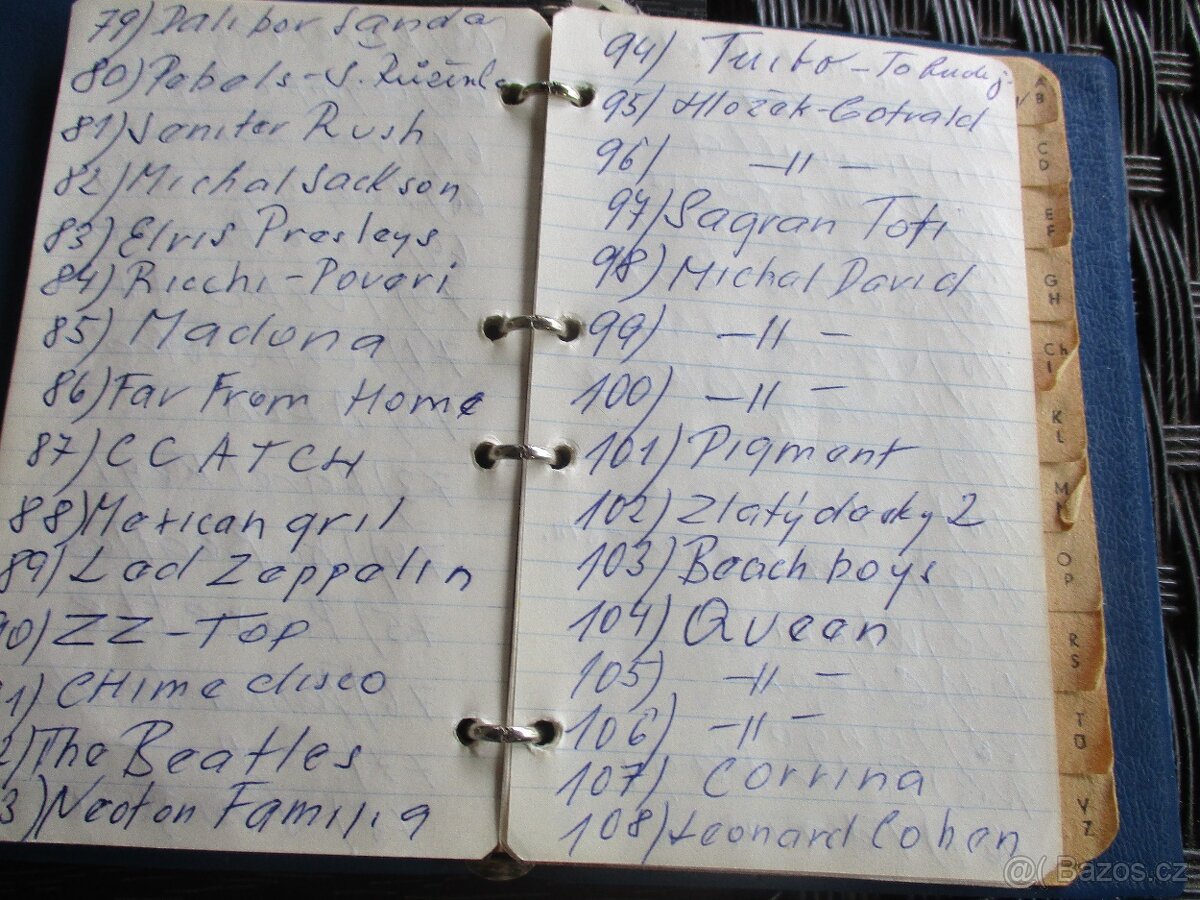 79) Dalibor Janda
80) Pebels-J. Růžička
81) Jeniter Rush
82) Michal Jackson
83) Elvis Presleys
84) Ricchi-Poveri
85) Madona
86) Far From Home
87) CC ATCH
88) Mexican gril
89) Led Zeppelin
90) ZZ-TOP
1) CHime disco
2) The Beatles
3) Neoton Familia
94) Turbo-To bude j.
95) Hložek-Gotvald
96) -11-
97) Sagran Tofi
98) Michal David
99) -11-
100) -11-
101) Pigment
102) Zlatý dasky 2
103) Beach boys
104) Queen
105) -11-
106) -11-
107) Corrina
108) Leonard Cohen
A
B
C
D
E
F
G
H
Ch
I
K
L
M
O
P
R
S
T
U
V
Z
@( Bazos.cz